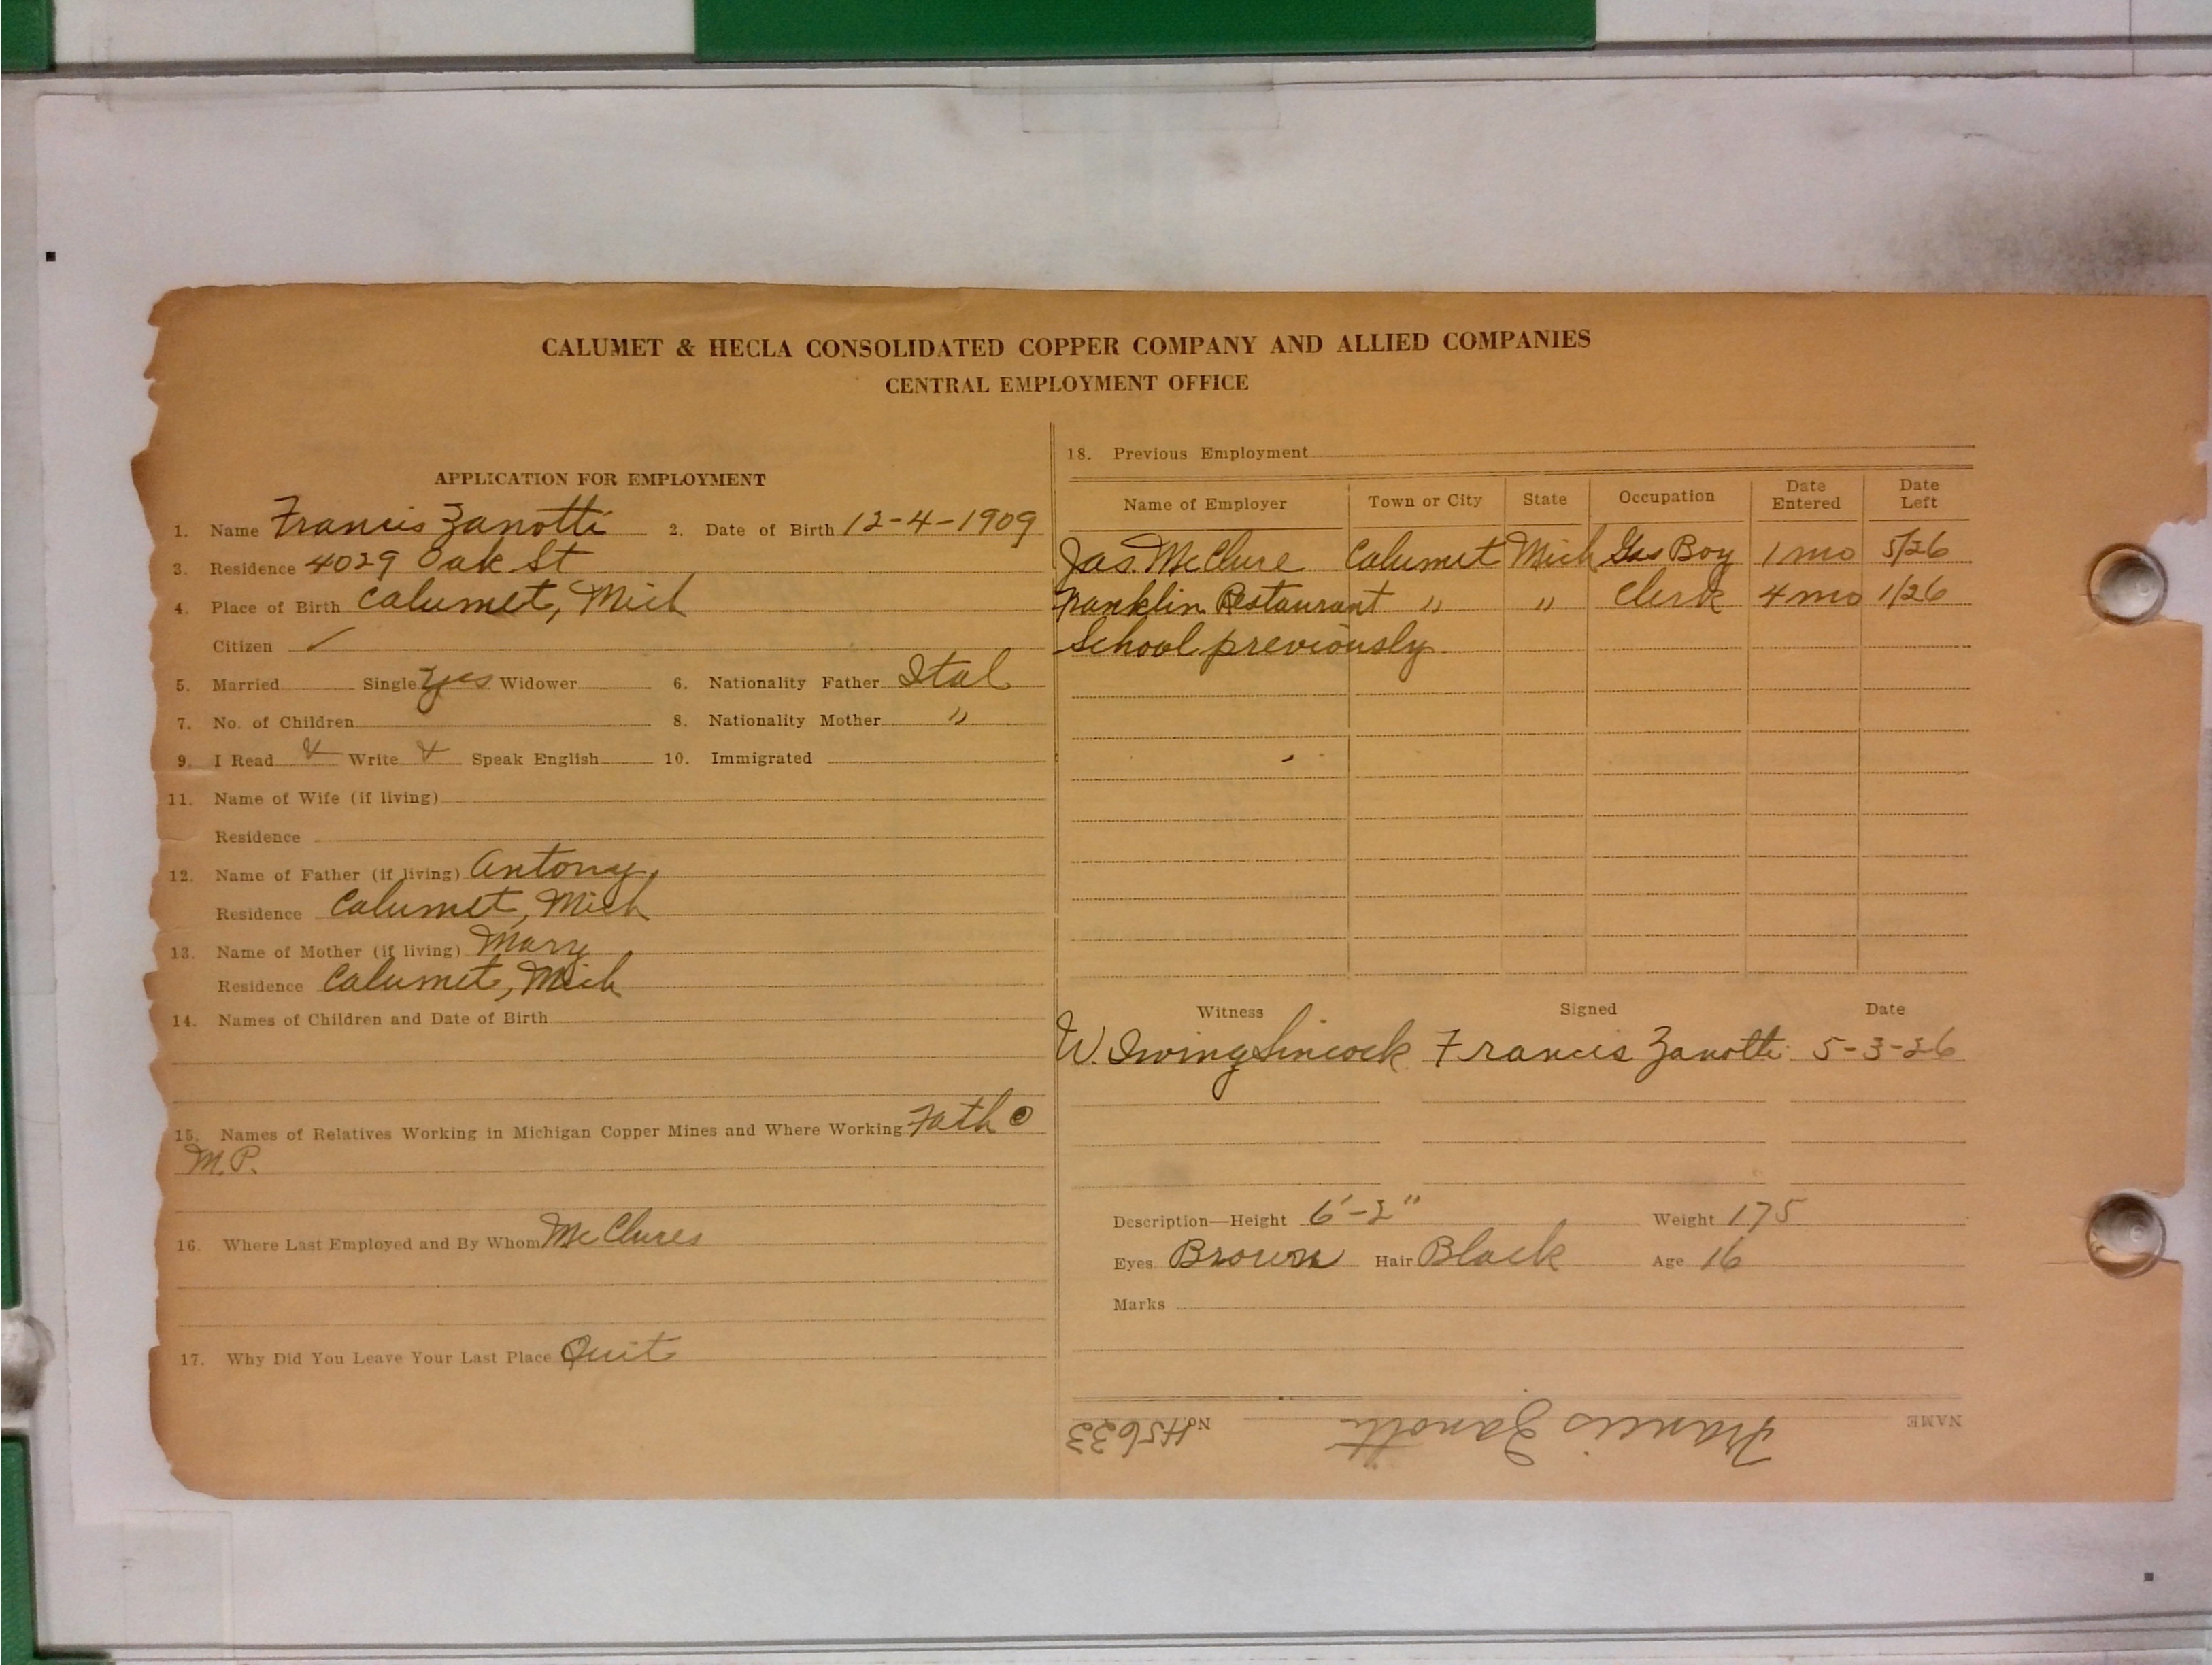 CALUMET & HECLA CONSOLIDATED COPPER COMPANY AND ALLIED COMPANIES
CENTRAL EMPLOYMENT OFFICE
APPLICATION FOR EMPLOYMENT
1. Name Francis Zanotti 2. Date of Birth 12-4-1909
3. Residence 4029 Oak St
4. Place of Birth Calumet, Mich
Citizen ✓
5. Married Single Yes Widower 6. Nationality Father Ital
7. No. of Children 8. Nationality Mother "
9. I Read & Write & Speak English 10. Immigrated
11. Name of Wife (if living)
Residence
12. Name of Father (if living) Antony
Residence Calumet, Mich
13. Name of Mother (if living) Mary
Residence Calumet, Mich
14. Names of Children and Date of Birth
15. Names of Relatives Working in Michigan Copper Mines and Where Working Fath @
M.P.
16. Where Last Employed and By Whom McClures
17. Why Did You Leave Your Last Place Quit
18. Previous Employment
Name of Employer Town or City State Occupation Date Entered Date Left
Jas. McClure Calumet Mich Gas Boy 1 mo 5/26
Franklin Restaurant " " Clerk 4 mo 1/26
School previously
Witness Signed Date
W. Irving Sincock Francis Zanotti 5-3-26
Description—Height 6'-2" Weight 175
Eyes Brown Hair Black Age 16
Marks
NAME Francis Zanotti No. H5633